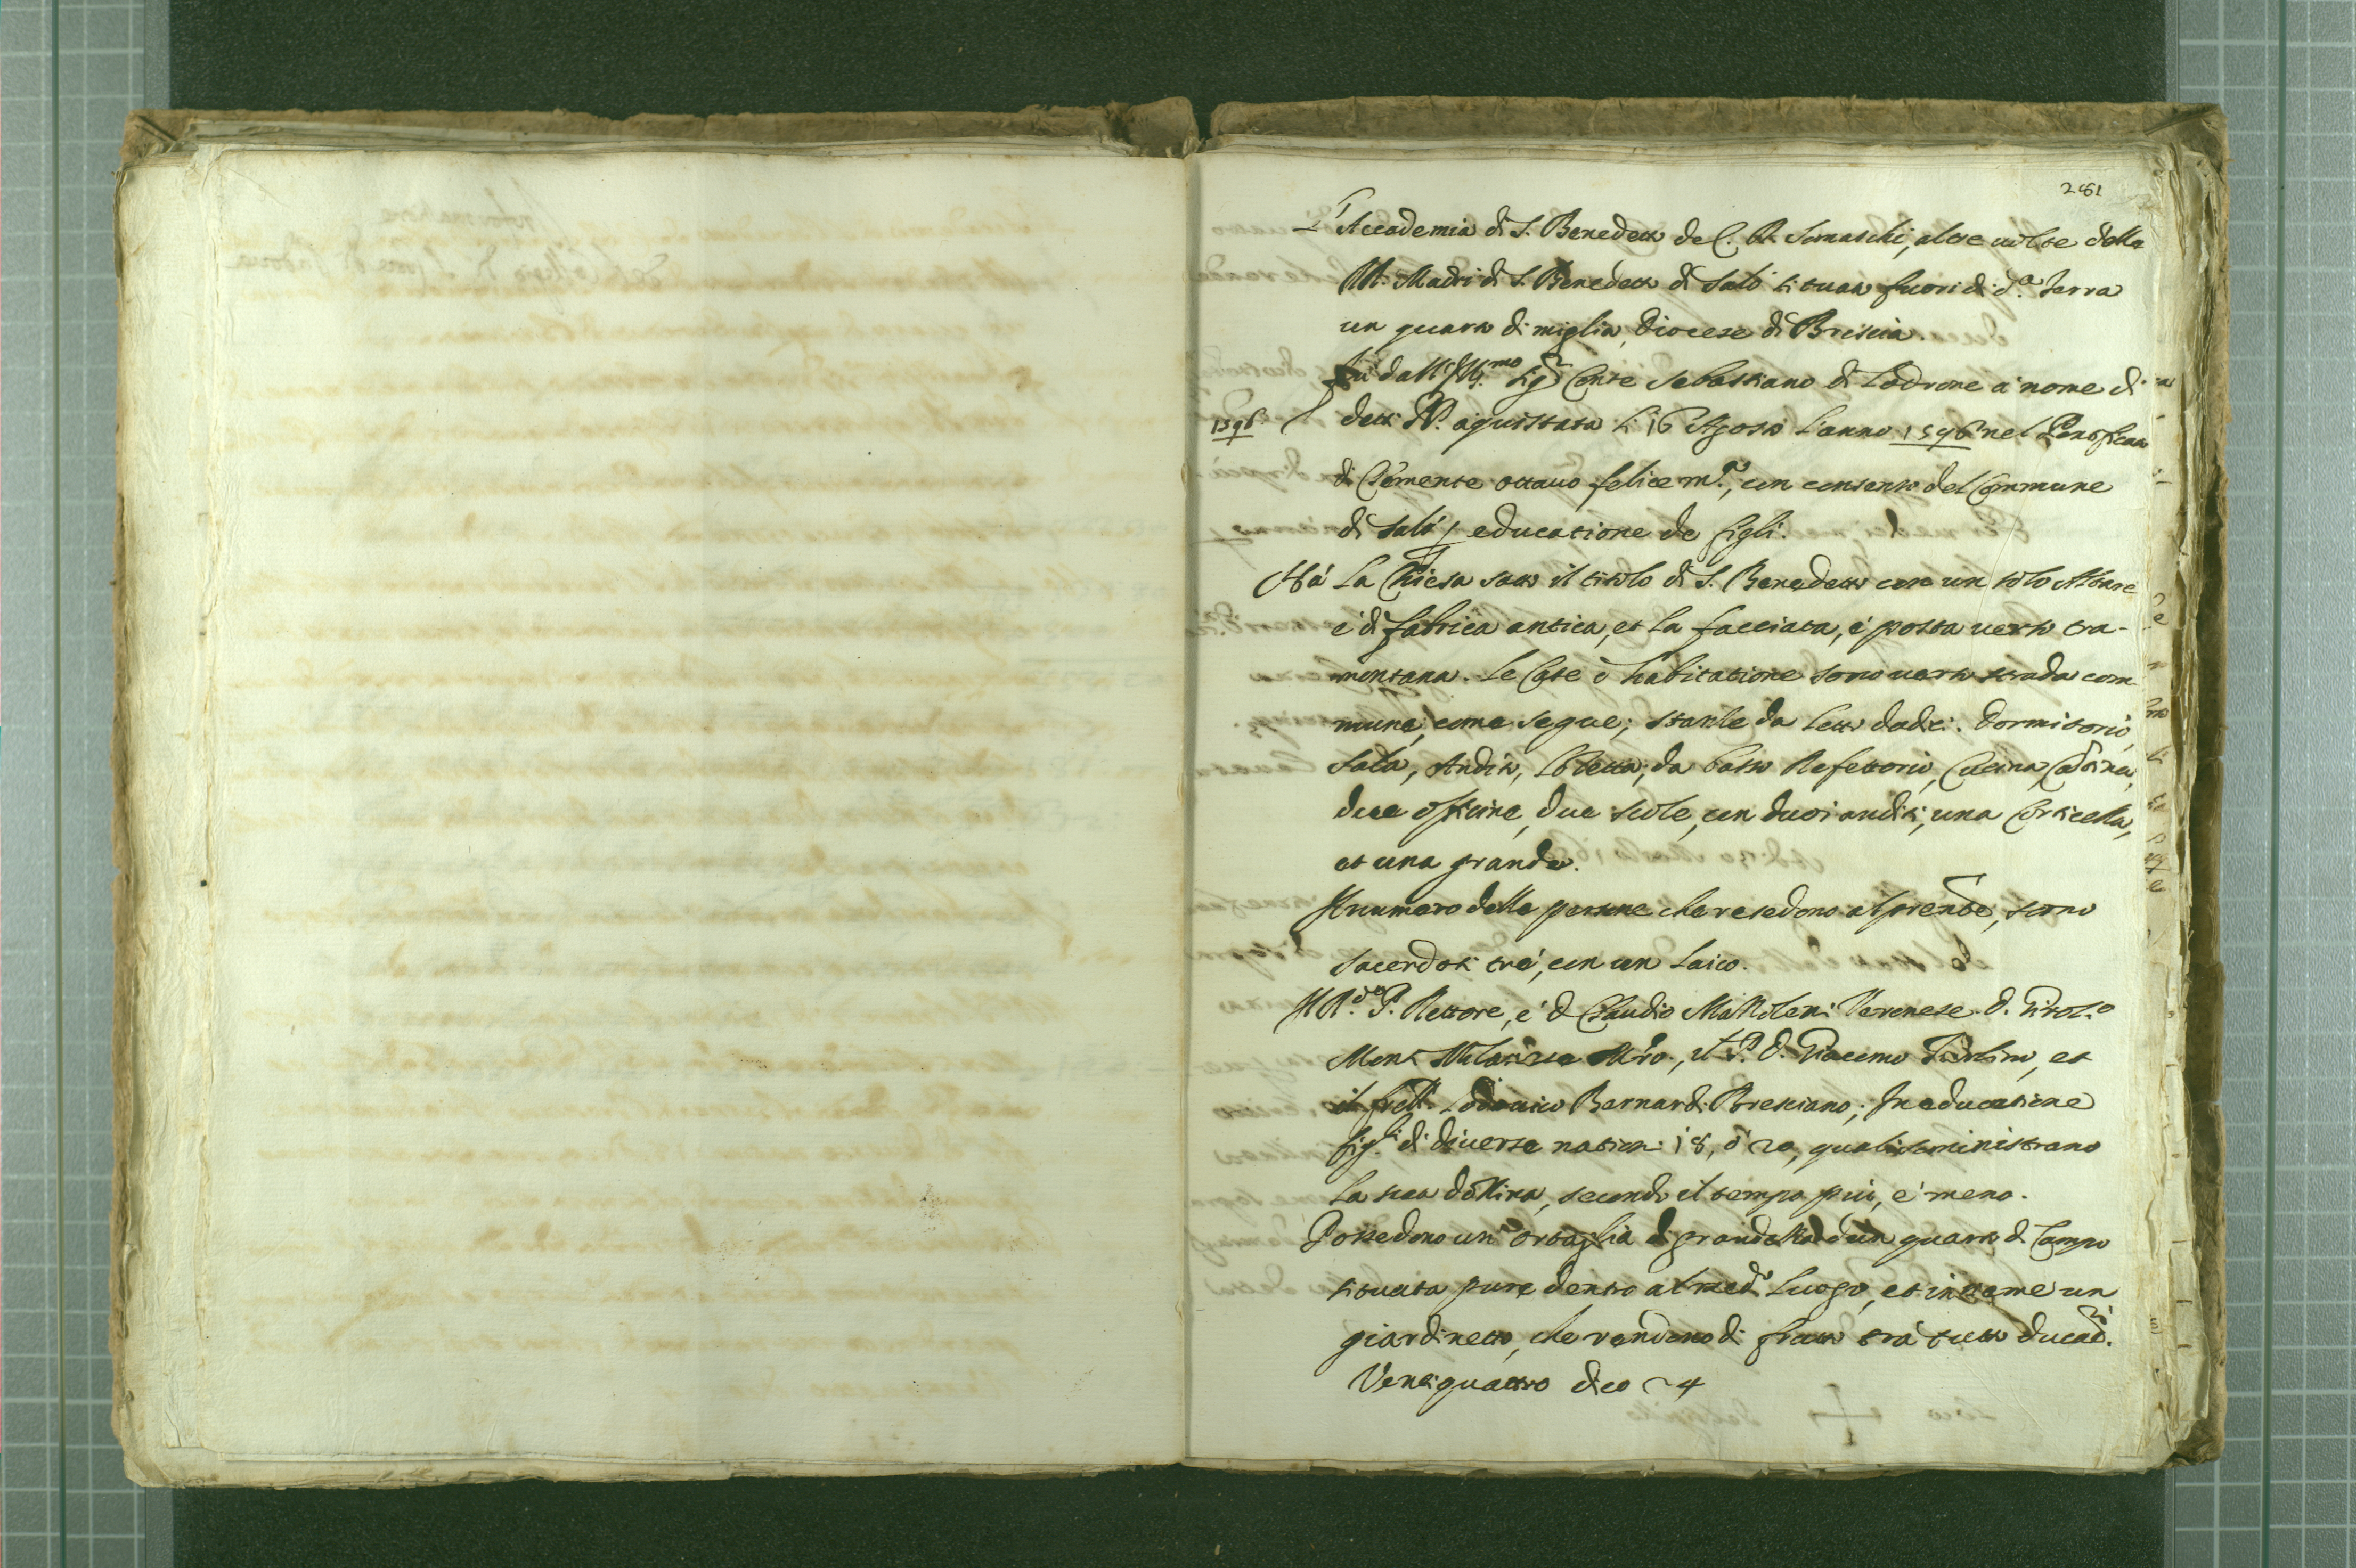 281
L'Accademia di S. Benedetto de C. R. Somaschi, altre uolte delle
M. Madri di S. Benedetto di Salò situata fuori di d.ª Terra
un quarto di miglia, Diocese di Brescia.
Fu dall' Ill.mo Sig.r Conte Sebastiano di Lodrone à nome di
1596
detti PP. aquistata li 16 Agosto l'anno 1596 nel Pontificato
di Clemente ottauo felice m.ª, con consenso del Commune
di Salò p educatione de figli.
Hà la Chiesa sotto il titolo di S. Benedetto con un solo Altare
è di fabrica antica, et la facciata, è posta uerso tra-
montana. Le Case ò habitatione sono uerso strada com
mune, come segue; stanze da letto dodici. Dormitorio,
Sala, Andito, Loletta; da basso Refettorio, Cucina, Cantina,
due officine, due scole, con duoi anditi, una Corticella,
et una grande.
Il numero delle persone che resedono al prente, sono
sacerdoti trè, con un Laico.
Il R.do P. Rettore, è D. Claudio Veronese. D. Girol.o
Monti Milanese Mro., il P. D. Giacomo et
il frell. Lodouico Bernardi Bresciano; In educatione
figli di diuerse nationi 18, ò 20, quali soministrano
la sua dozina, secondo il tempo più, e meno.
Possedono un' Ortaglia di grandezza d'un quarto di Campo
situata pure dentro al med.o Luogo, et insieme un
giardinetto, che rendono di frutto trà tutto ducati.
Ventiquattro dico 24